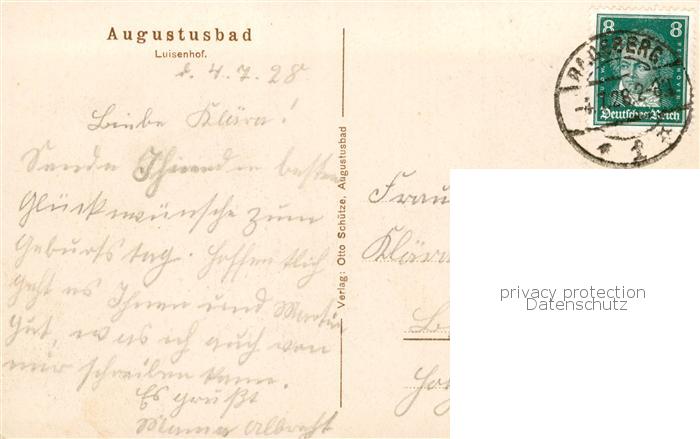 Augustusbad
Luisenhof.
d. 4.7.28
Liebe Klära!
Sende Ihnen die besten
Glückwünsche zum
Geburtstag. Hoffentlich
geht es Ihnen und Martin
gut, was ich auch von
mir schreiben kann.
Es grüßt
Mama Albrecht
Verlag: Otto Schütze, Augustusbad
8 8
Deutsches Reich
RADEBERG
Frau
Klära
privacy protection
Datenschutz